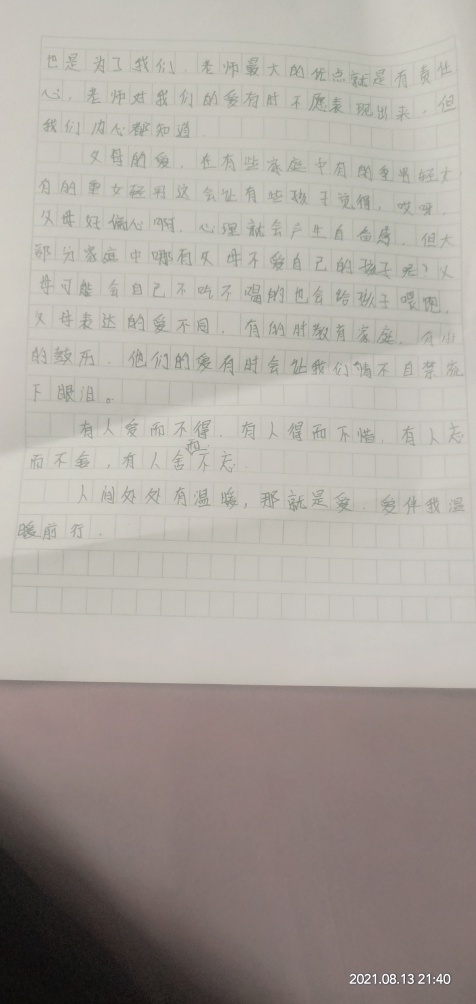 也是为了我们。老师最大的优点就是有责任
心。老师对我们的爱有时不愿表现出来，但
我们内心都知道。
父母的爱。在有些家庭中有的重男轻女
有的重女轻男这会让有些孩子觉得，哎呀，
父母好偏心啊。心理就会产生自卑感。但大
部分家庭中哪有父母不爱自己的孩子呢？父
母可能会自己不吃不喝的也会给孩子喂饱。
父母表达的爱不同，有的时教有家庭。
的鼓历。他们的爱有时会让我们情不自禁流
下眼泪。
有人爱而不得，有人得而不惜，有人忘
而不舍，有人舍而不忘。
人间处处有温暖，那就是爱。爱伴我温
暖前行。
2021.08.13 21:40